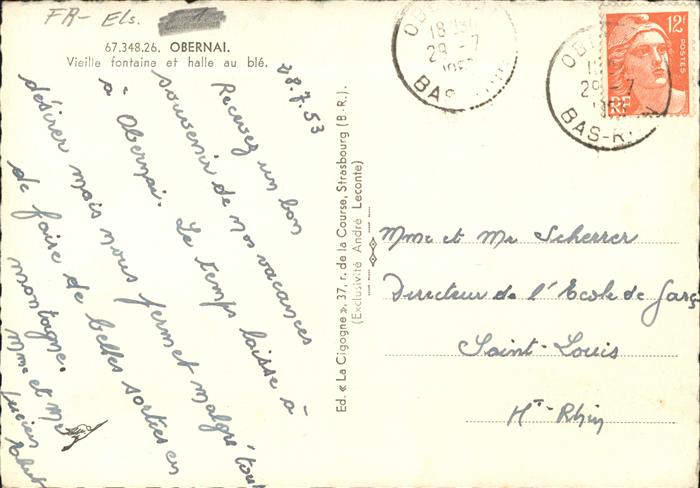 FR- Els.
67.348.26. OBERNAI.
Vieille fontaine et halle au blé.
28.7.53
Recevez un bon
souvenir de nos vacances
à Obernai. Le temps laisse à
désirer mais nous permet malgré tout
de faire de belles sorties en
montagne.
Mme et Mr
Lucien
Ed. « La Cigogne », 37, r. de la Course, Strasbourg (B.-R.).
(Exclusivité André Leconte)
OBERNAI
18
29 -7
1953
BAS-RHIN
OBERNAI
29 -7
1953
BAS-RHIN
12F
POSTES
RF
Mme et Mr Scherrer
Directeur de l'Ecole de Garç
Saint-Louis
Ht-Rhin